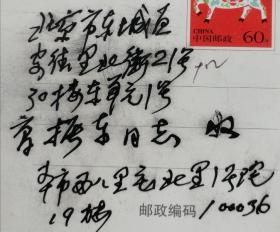 北京市东城区
安德里北街21号
30楼东单元1号
高振东同志 收
本市西八里庄北里1号院
19楼
邮政编码 100036
CHINA
中国邮政 60分